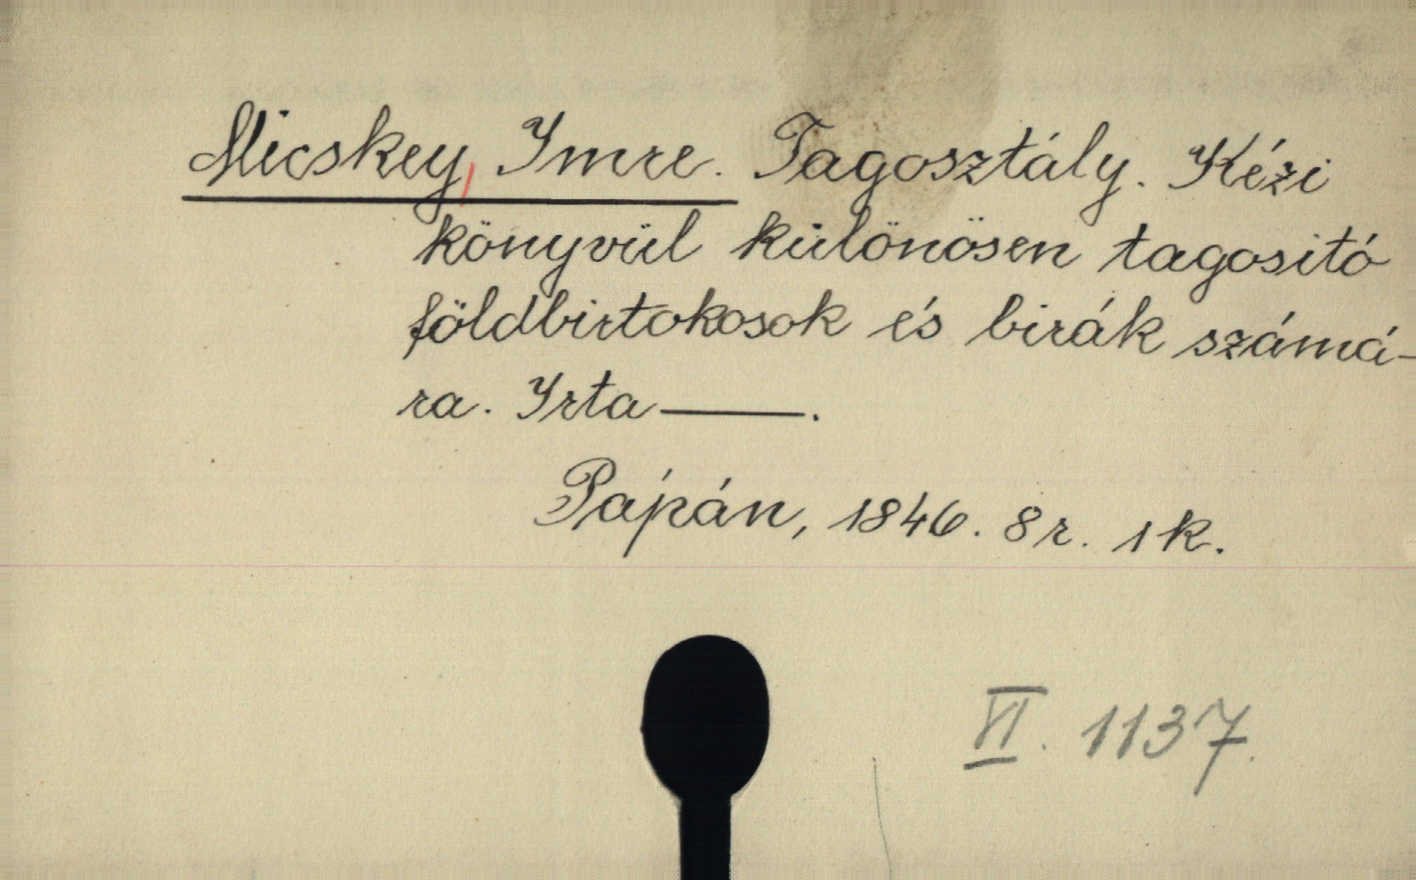 Micskey, Imre. Tagosztály. Kézi
könyvül különösen tagositó
földbirtokosok és birák számá-
ra. Irta ———.
Pápán, 1846. 8 r. 1 k.
VI. 1137.